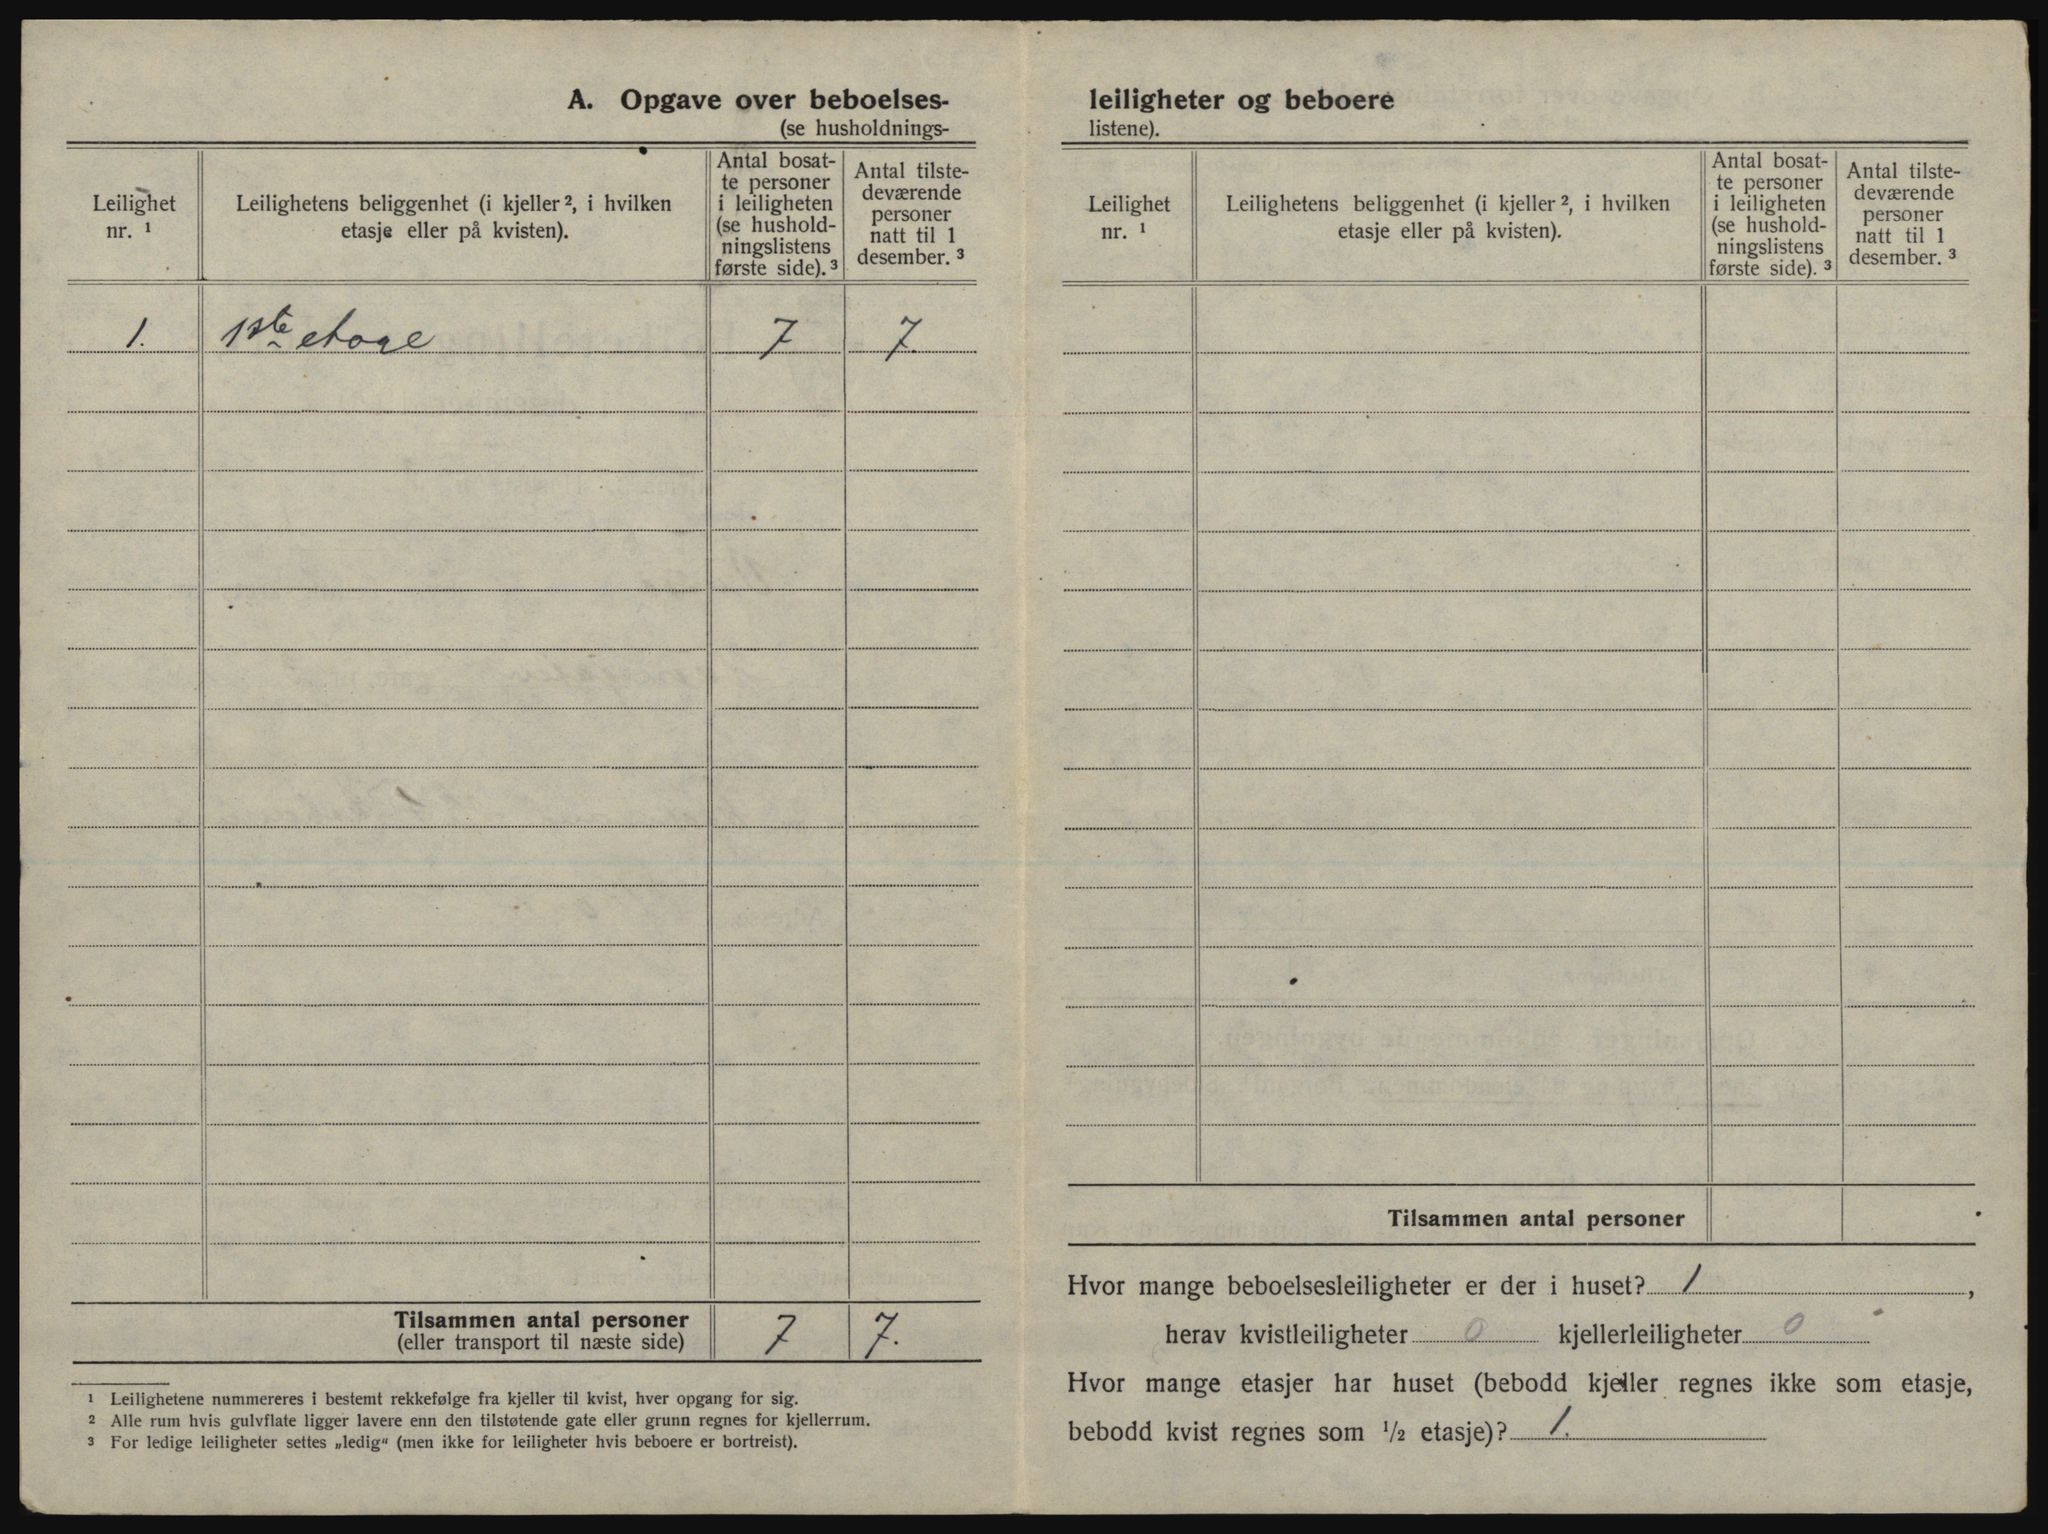 A. Opgave over beboelses-
(se husholdnings-
Leilighet
nr. ¹
Leilighetens beliggenhet (i kjeller ², i hvilken
etasje eller på kvisten).
Antal bosat-
te personer
i leiligheten
(se hushold-
ningslistens
første side). ³
Antal tilste-
deværende
personer
natt til 1
desember. ³
1. 1ste etage 7 7.
Tilsammen antal personer
(eller transport til næste side) 7 7.
¹ Leilighetene nummereres i bestemt rekkefølge fra kjeller til kvist, hver opgang for sig.
² Alle rum hvis gulvflate ligger lavere enn den tilstøtende gate eller grunn regnes for kjellerrum.
³ For ledige leiligheter settes „ledig“ (men ikke for leiligheter hvis beboere er bortreist).
leiligheter og beboere
listene).
Leilighet
nr. ¹
Leilighetens beliggenhet (i kjeller ², i hvilken
etasje eller på kvisten).
Antal bosat-
te personer
i leiligheten
(se hushold-
ningslistens
første side). ³
Antal tilste-
deværende
personer
natt til 1
desember. ³
Tilsammen antal personer
Hvor mange beboelsesleiligheter er der i huset? 1,
herav kvistleiligheter 0 kjellerleiligheter 0
Hvor mange etasjer har huset (bebodd kjeller regnes ikke som etasje,
bebodd kvist regnes som ½ etasje)? 1.